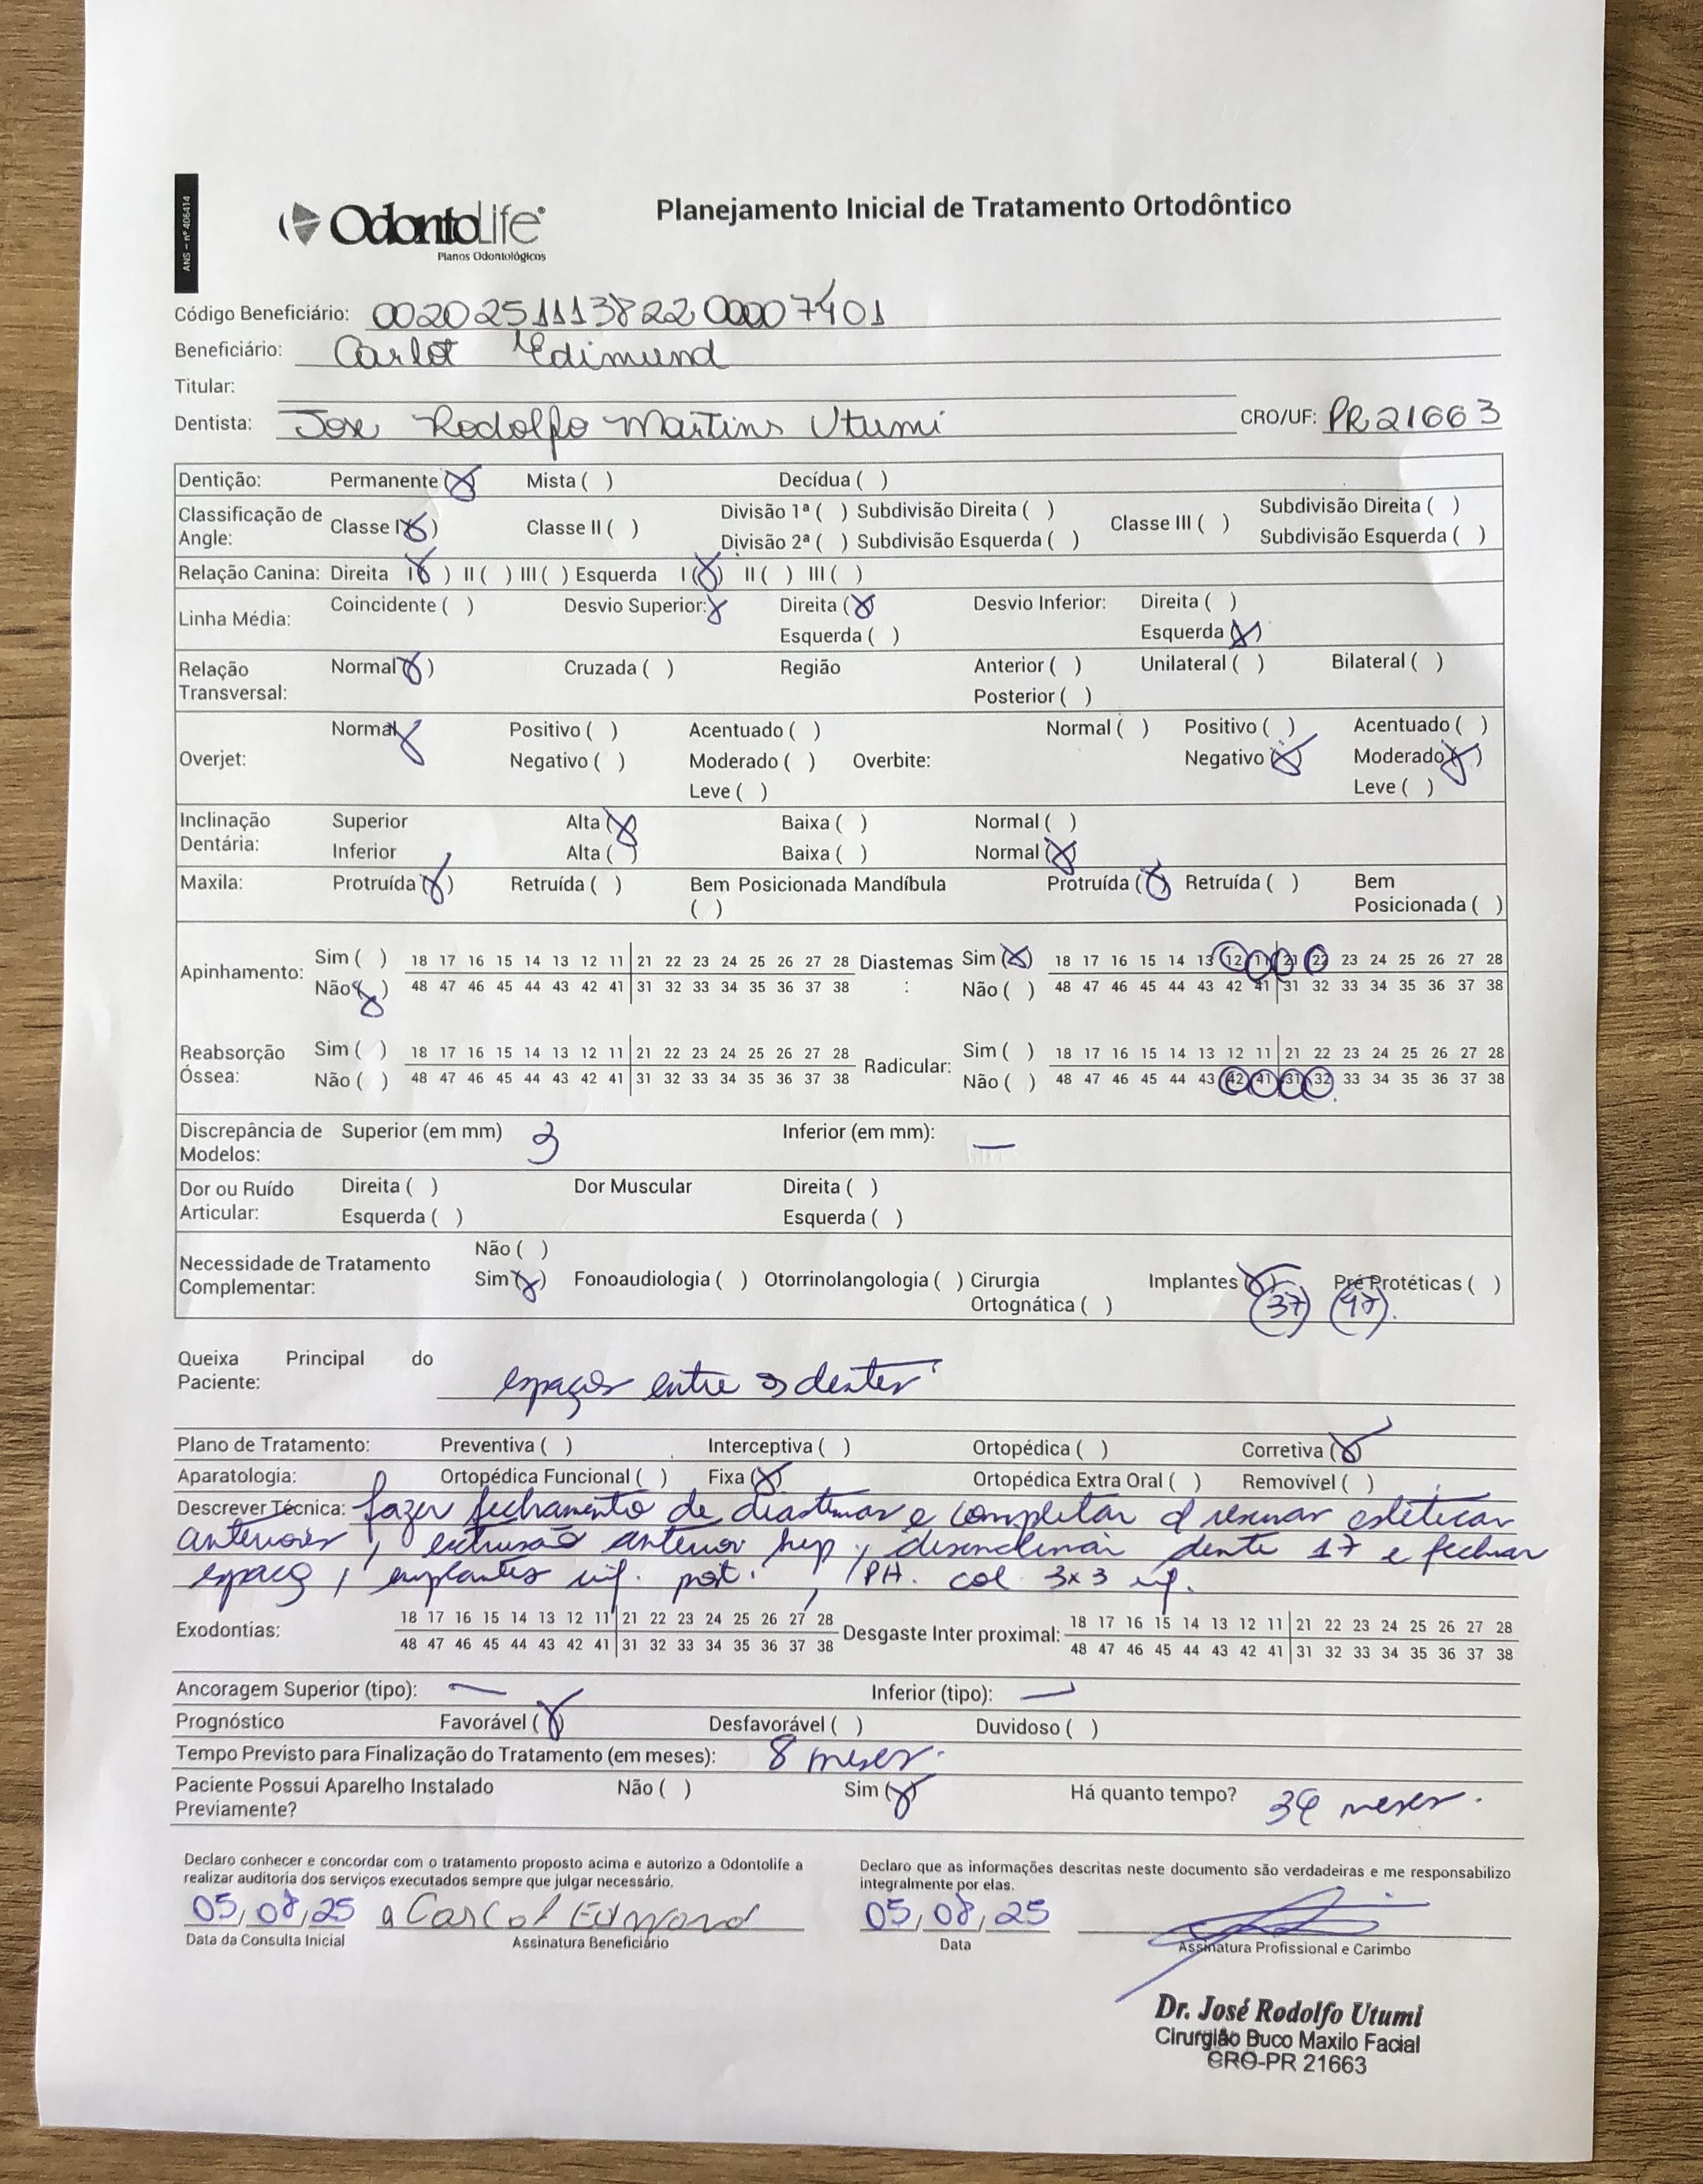 ANS – nº 406414
OdontoLife®
Planos Odontológicos
Planejamento Inicial de Tratamento Ortodôntico
Código Beneficiário: 002025111382200007401
Beneficiário: Carlot Edimund
Titular:
Dentista: Jose Rodolfo Martins Utumi CRO/UF: PR 21663
Dentição: Permanente (X) Mista ( ) Decídua ( )
Classificação de Angle: Classe I (X) Classe II ( ) Divisão 1ª ( ) Subdivisão Direita ( ) Divisão 2ª ( ) Subdivisão Esquerda ( ) Classe III ( ) Subdivisão Direita ( ) Subdivisão Esquerda ( )
Relação Canina: Direita I (X) II ( ) III ( ) Esquerda I (X) II ( ) III ( )
Linha Média: Coincidente ( ) Desvio Superior: X Direita (X) Esquerda ( ) Desvio Inferior: Direita ( ) Esquerda (X)
Relação Transversal: Normal (X) Cruzada ( ) Região Anterior ( ) Posterior ( ) Unilateral ( ) Bilateral ( )
Overjet: Normal X Positivo ( ) Negativo ( ) Acentuado ( ) Moderado ( ) Leve ( ) Overbite: Normal ( ) Positivo ( ) Negativo (X) Acentuado ( ) Moderado (X) Leve ( )
Inclinação Dentária: Superior Alta (X) Baixa ( ) Normal ( )
Inferior Alta ( ) Baixa ( ) Normal (X)
Maxila: Protruída (X) Retruída ( ) Bem Posicionada ( ) Mandíbula Protruída (X) Retruída ( ) Bem Posicionada ( )
Apinhamento: Sim ( ) Não (X) 18 17 16 15 14 13 12 11 21 22 23 24 25 26 27 28
48 47 46 45 44 43 42 41 31 32 33 34 35 36 37 38
Diastemas: Sim (X) Não ( ) 18 17 16 15 14 13 12 11 21 22 23 24 25 26 27 28
48 47 46 45 44 43 42 41 31 32 33 34 35 36 37 38
Reabsorção Óssea: Sim ( ) Não ( ) 18 17 16 15 14 13 12 11 21 22 23 24 25 26 27 28
48 47 46 45 44 43 42 41 31 32 33 34 35 36 37 38
Radicular: Sim ( ) Não ( ) 18 17 16 15 14 13 12 11 21 22 23 24 25 26 27 28
48 47 46 45 44 43 42 41 31 32 33 34 35 36 37 38
Discrepância de Modelos: Superior (em mm) 3 Inferior (em mm): —
Dor ou Ruído Articular: Direita ( ) Esquerda ( ) Dor Muscular Direita ( ) Esquerda ( )
Necessidade de Tratamento Complementar: Não ( ) Sim (X) Fonoaudiologia ( ) Otorrinolangologia ( ) Cirurgia Ortognática ( ) Implantes (X) Pré Protéticas ( )
37 47.
Queixa Principal do Paciente: espaços entre os dentes
Plano de Tratamento: Preventiva ( ) Interceptiva ( ) Ortopédica ( ) Corretiva (X)
Aparatologia: Ortopédica Funcional ( ) Fixa (X) Ortopédica Extra Oral ( ) Removível ( )
Descrever Técnica: fazer fechamento de diastemas e completar resinas estéticas
anteriores, extrusão anterior sup, desinclinar dente 17 e fechar
espaço, implantes inf. post., col 3x3 inf.
Exodontias: 18 17 16 15 14 13 12 11 21 22 23 24 25 26 27 28
48 47 46 45 44 43 42 41 31 32 33 34 35 36 37 38
Desgaste Inter proximal: 18 17 16 15 14 13 12 11 21 22 23 24 25 26 27 28
48 47 46 45 44 43 42 41 31 32 33 34 35 36 37 38
Ancoragem Superior (tipo): — Inferior (tipo): —
Prognóstico Favorável (X) Desfavorável ( ) Duvidoso ( )
Tempo Previsto para Finalização do Tratamento (em meses): 8 meses.
Paciente Possui Aparelho Instalado Previamente? Não ( ) Sim (X) Há quanto tempo? meses.
Declaro conhecer e concordar com o tratamento proposto acima e autorizo a Odontolife a
realizar auditoria dos serviços executados sempre que julgar necessário.
05/08/25
Data da Consulta Inicial Assinatura Beneficiário
Declaro que as informações descritas neste documento são verdadeiras e me responsabilizo
integralmente por elas.
05/08/25
Data Assinatura Profissional e Carimbo
Dr. José Rodolfo Utumi
Cirurgião Buco Maxilo Facial
CRO-PR 21663